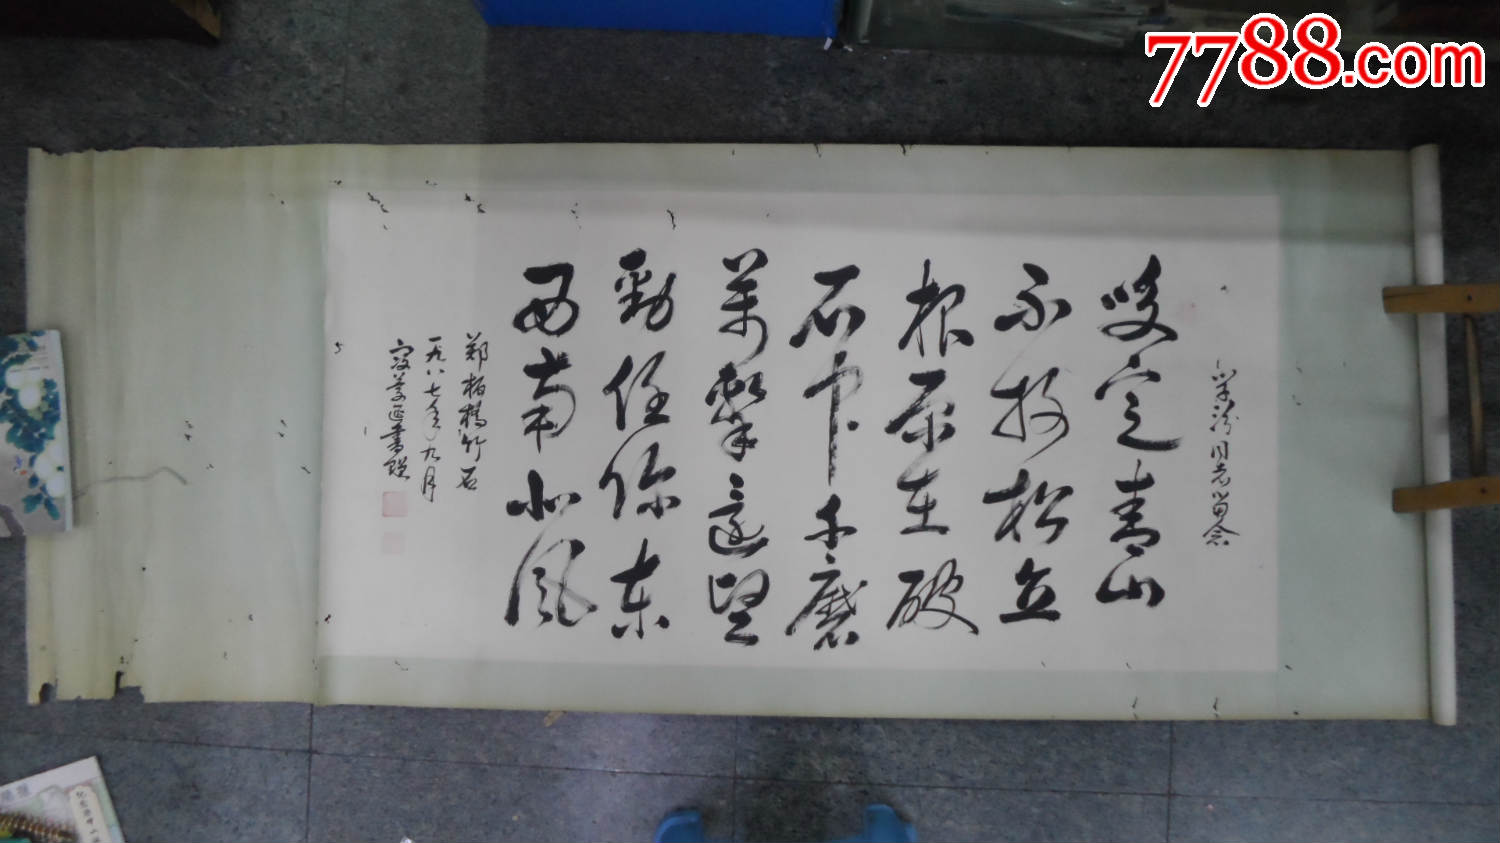 7788.com
同志留念
咬定青山
不放松立
根原在破
石中千磨
萬擊還堅
勁任你东
西南北风
郑板橋竹石
一九八七年九月
書贈